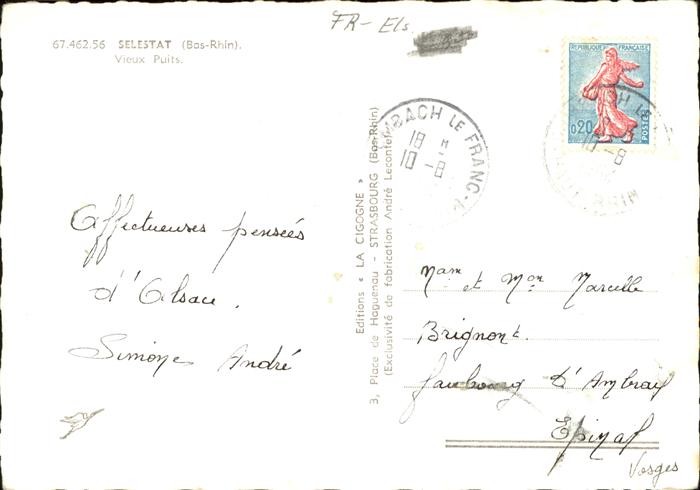 FR- Els.
67.462.56 SELESTAT (Bas-Rhin).
Vieux Puits.
REPUBLIQUE FRANÇAISE
0,20
POSTES
BACH LE FRANC-
18 H
10 -8
10 -8
RHIN
Editions « LA CIGOGNE »
3, Place de Haguenau - STRASBOURG (Bas-Rhin)
(Exclusivité de fabrication André Leconte)
Affectueuses pensées
d'Alsace.
Simone André
Mam et Mon Marcelle
Brignont.
faubourg d'Ambrail
Epinal
Vosges